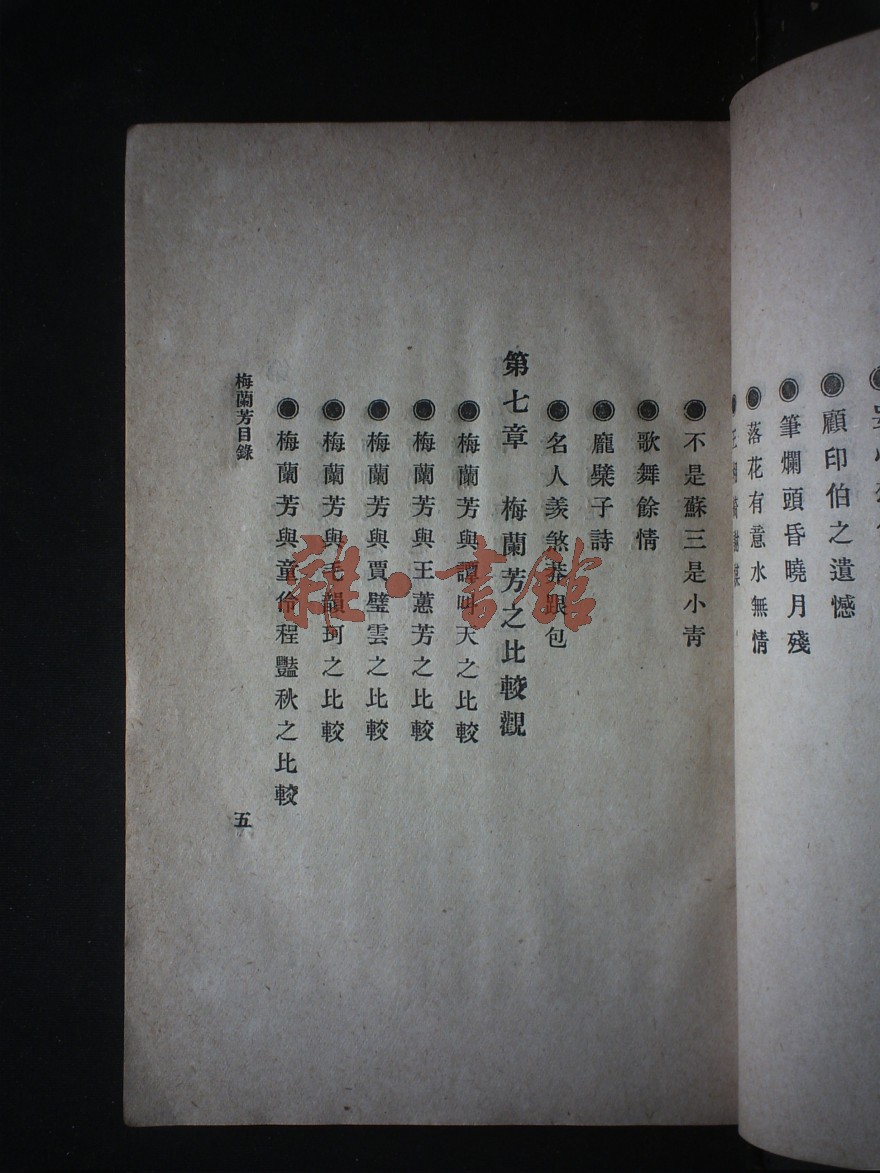 顧印伯之遺憾
筆爛頭昏曉月殘
落花有意水無情
●不是蘇三是小青
●歌舞餘情
●龐檗子詩
●名人羨煞莽跟包
第七章 梅蘭芳之比較觀
●梅蘭芳與譚叫天之比較
●梅蘭芳與王蕙芳之比較
●梅蘭芳與賈璧雲之比較
●梅蘭芳與毛韻珂之比較
●梅蘭芳與童伶程豔秋之比較
梅蘭芳目錄
五
雜·書館